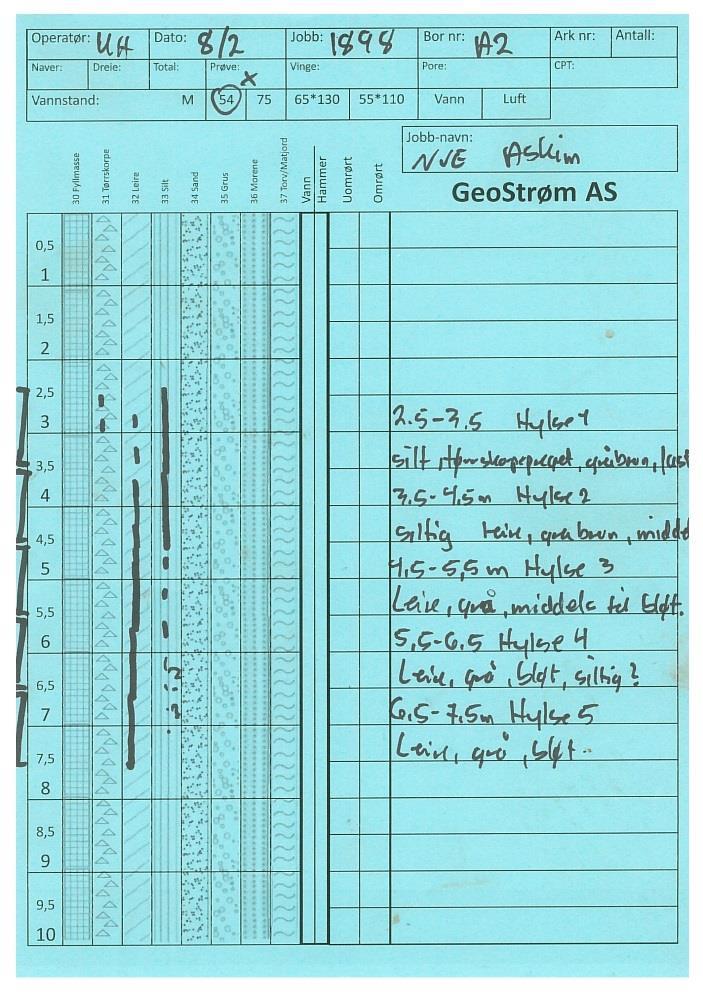 Operatør: UA Dato: 8/2 Jobb: 1898 Bor nr: A2 Ark nr: Antall:
Naver: Dreie: Total: Prøve: x Vinge: Pore: CPT:
Vannstand: M 54 75 65*130 55*110 Vann Luft
Jobb-navn:
NVE Askim
GeoStrøm AS
30 Fyllmasse
31 Tørrskorpe
32 Leire
33 Silt
34 Sand
35 Grus
36 Morene
37 Torv/Matjord
Vann
Hammer
Uomrørt
Omrørt
0,5
1
1,5
2
2,5
3 2.5-3.5 Hylse 1
3,5 silt, tørrskorpepreget, gråbrun, fast
4 3,5-4,5m Hylse 2
4,5 siltig leire, gråbrun, middels
5 4,5-5,5 m Hylse 3
5,5 Leire, grå, middels til bløt.
6 5,5-6.5 Hylse 4
6,5 ? Leire, grå, bløt, siltig?
7 ? 6,5-7,5m Hylse 5
7,5 Leire, grå, bløt
8
8,5
9
9,5
10